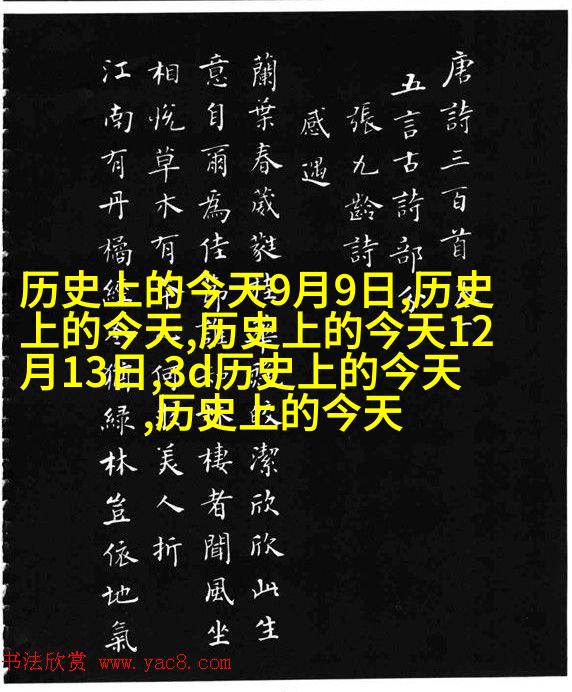 唐詩三百首
五言古詩部分
張九齡詩
感遇
蘭葉春葳蕤桂華秋皎潔欣欣此生
意自爾為佳節誰知林棲者聞風坐
相悅草木有本心何求美人折
江南有丹橘經冬猶綠林豈依地氣
历史上的今天9月9日,历史
上的今天,历史上的今天12
月13日,3d历史上的今天
,历史上的今天
书法欣赏 www.yac8.com